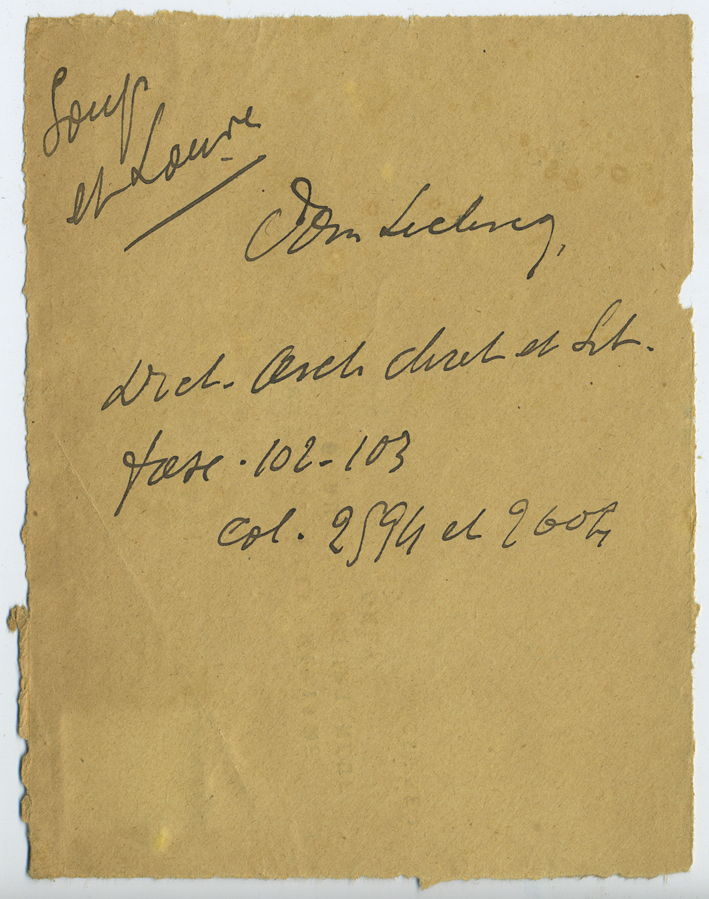 Loup
et Louve
Dom Leclercq,
Dict. Arch chret et Lit.
fasc. 102-103
Col. 2594 et 2604